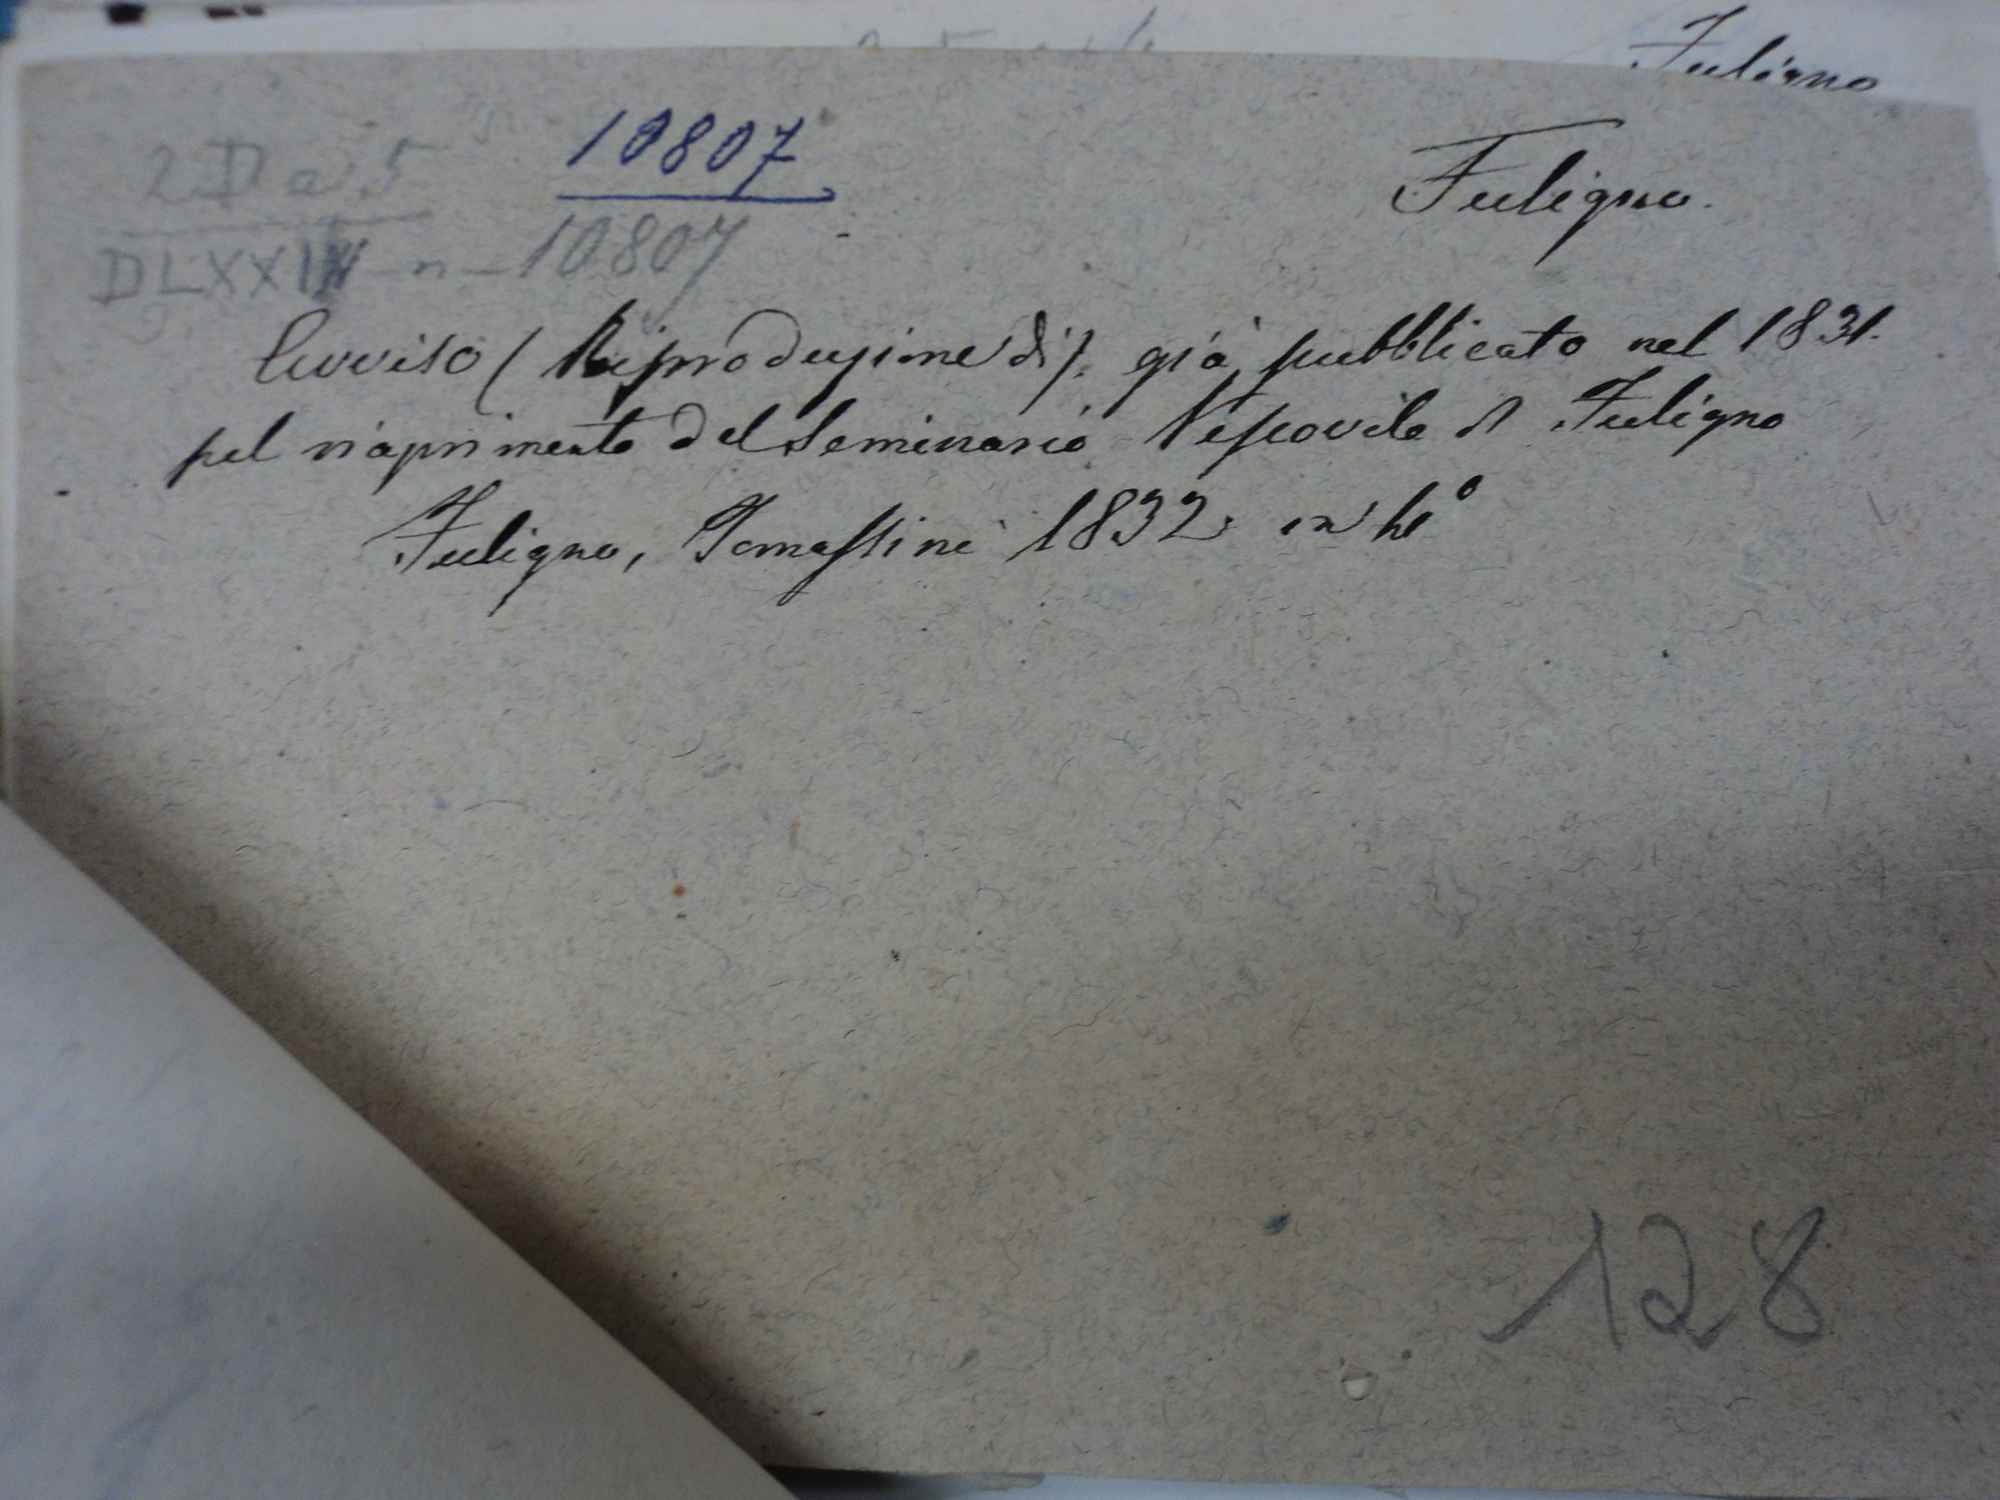 Fuligno
10807
2 D a 5
Fuligno.
DLXXI n 10807
Avviso (Riproduzione di). già pubblicato nel 1831.
pel riaprimento del Seminario Vescovile di Fuligno
Fuligno, Tomassini 1832. in
128